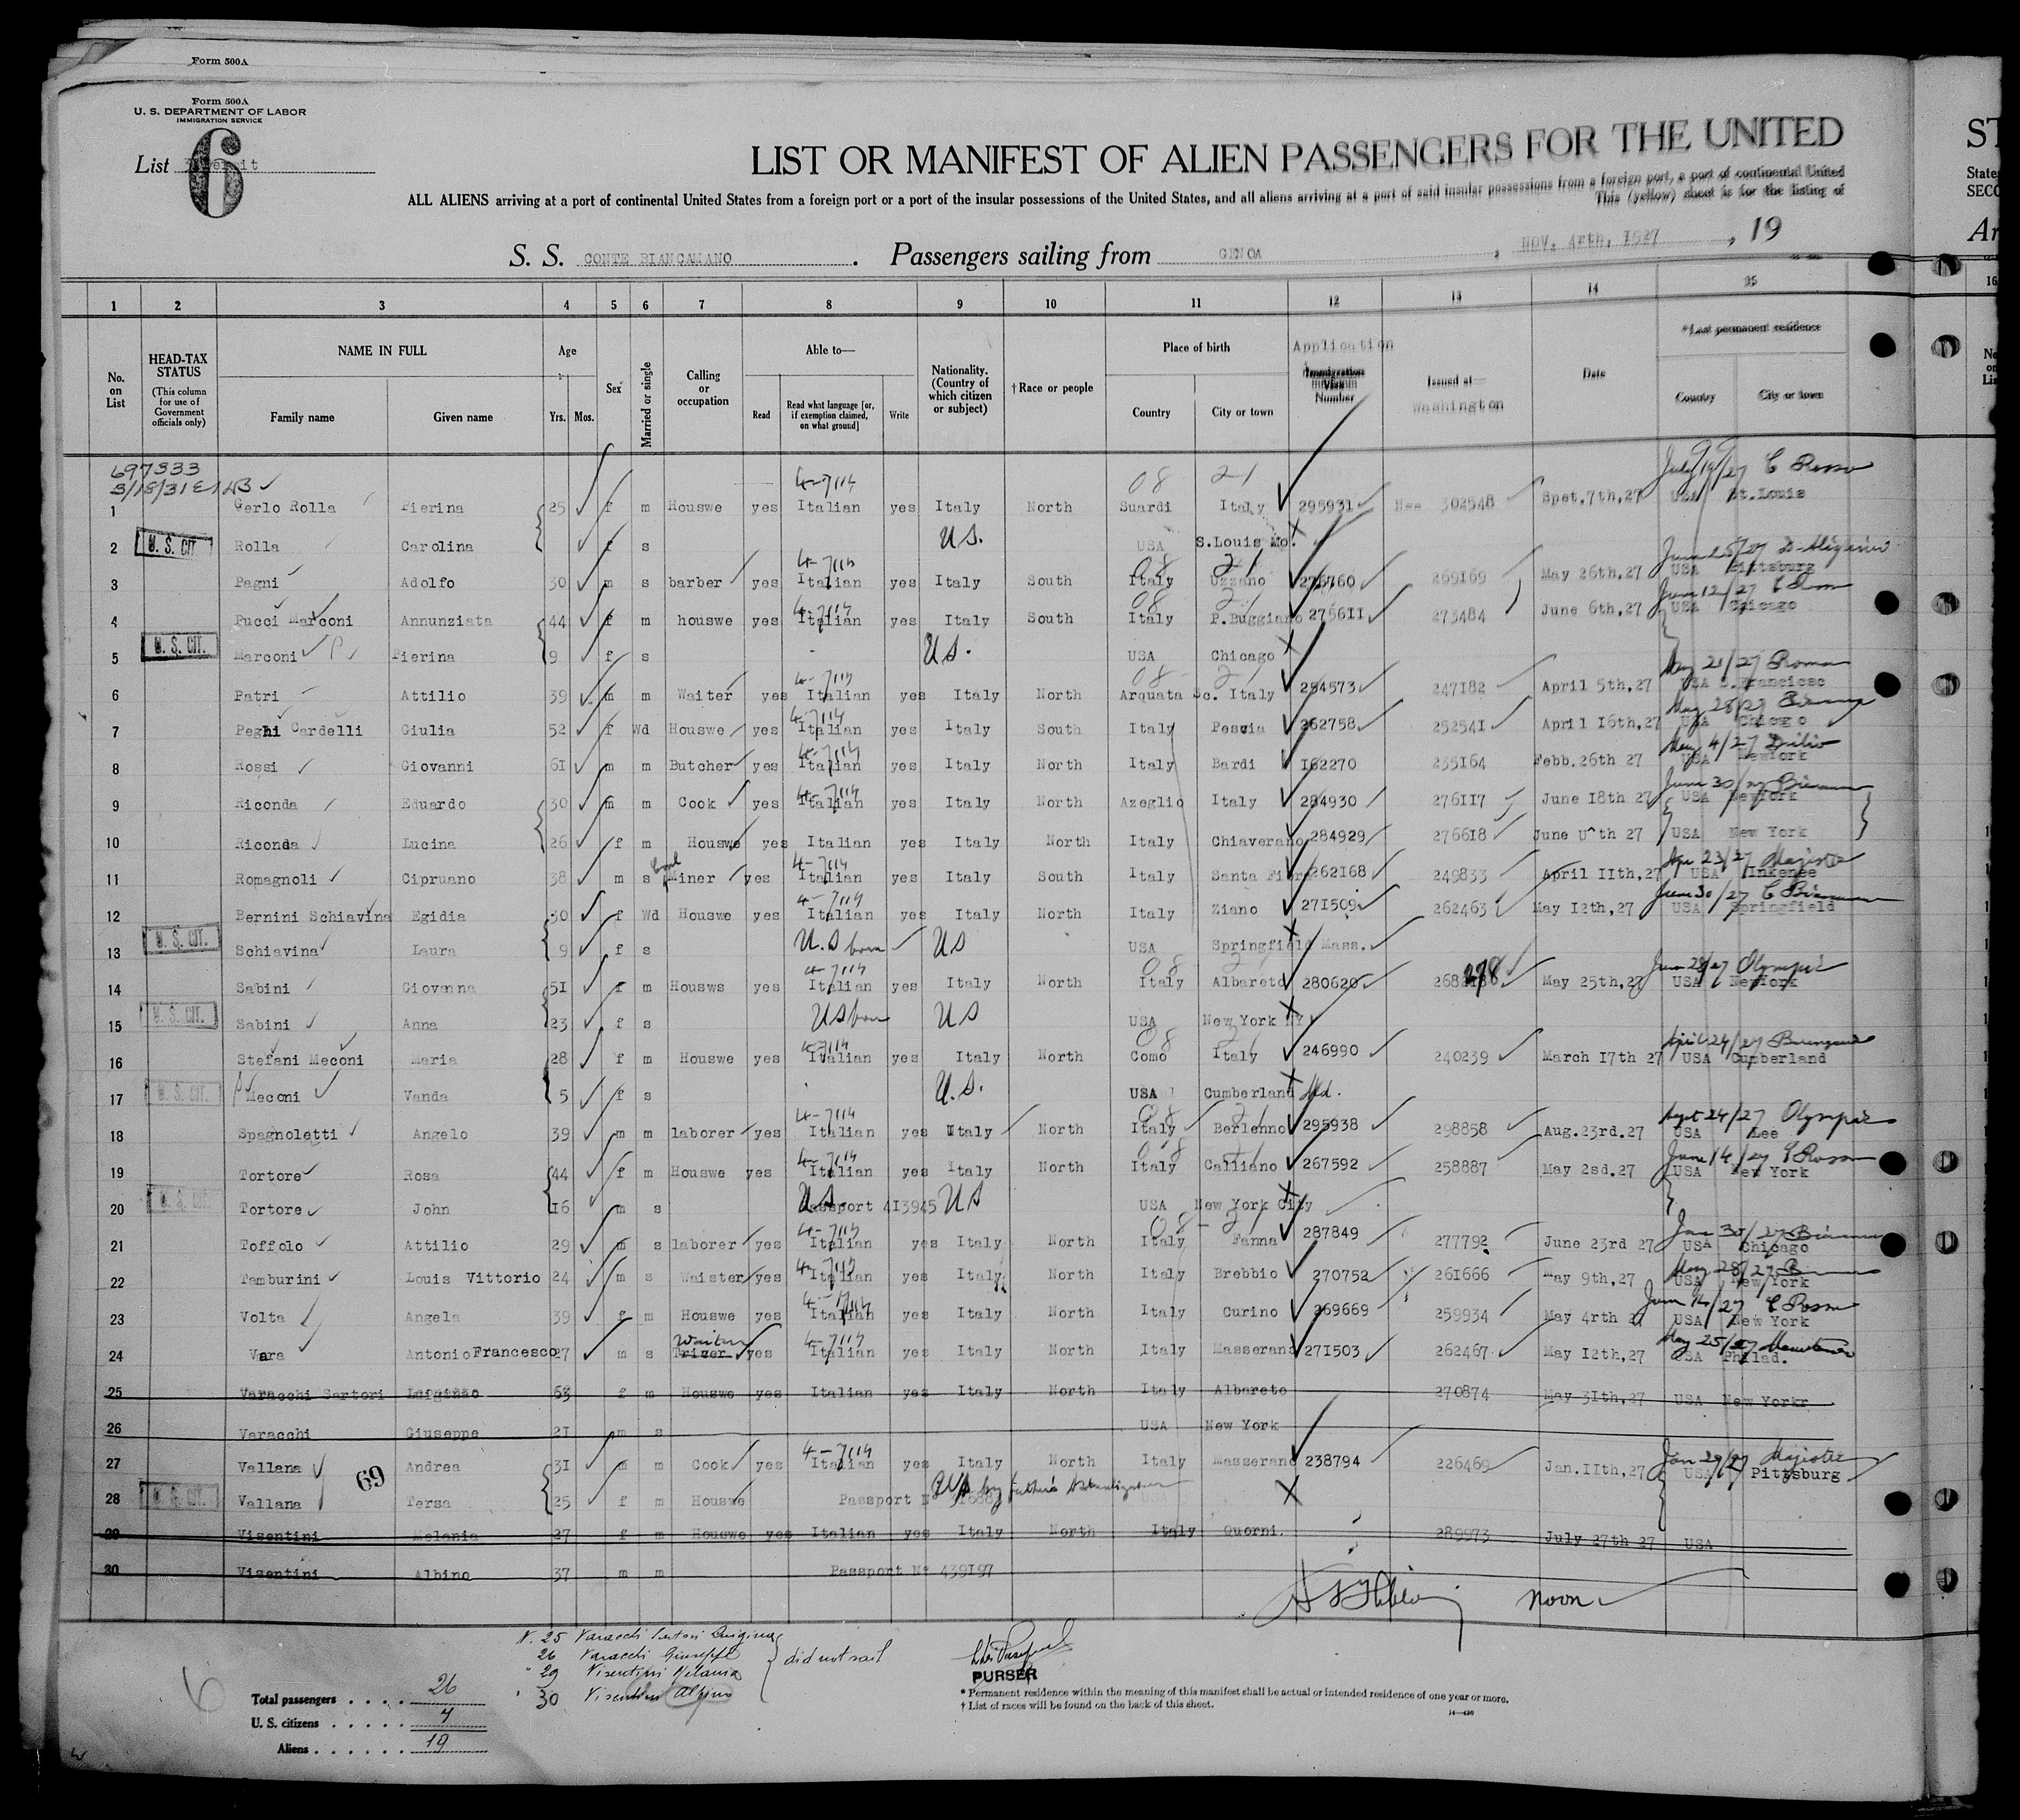 Form 500A
Form 500A
U. S. DEPARTMENT OF LABOR
IMMIGRATION SERVICE
List 6
LIST OR MANIFEST OF ALIEN PASSENGERS FOR THE UNITED
ST
ALL ALIENS arriving at a port of continental United States from a foreign port or a port of the insular possessions of the United States, and all aliens arriving at a port of said insular possessions from a foreign port, a port of continental United
This (yellow) sheet is for the listing of
State
SECO
S. S. CONTE BIANCAMANO. Passengers sailing from GENOA, NOV. 4rth, 1927, 19
Ar
1 2 3 4 5 6 7 8 9 10 11 12 13 14 15 16
No. on List
HEAD-TAX STATUS (This column for use of Government officials only)
NAME IN FULL Family name Given name
Age Yrs. Mos.
Sex
Married or single
Calling or occupation
Able to— Read Read what language [or, if exemption claimed, on what ground] Write
Nationality. (Country of which citizen or subject)
†Race or people
Place of birth Country City or town
Application Immigration Visa Number
Issued at— Washington
Date
*Last permanent residence Country City or town
697333
3/18/31
July 19/27 C Rosso
4-7114 08 21
1 Gerlo Rolla Pierina 25 f m Houswe yes Italian yes Italy North Suardi Italy 295931 302548 Spet.7th,27 USA St.Louis
2 U. S. CIT Rolla Carolina f s U.S. USA S.Louis Mo.
3 Pagni Adolfo 30 m s barber yes Italian yes Italy South Italy Uzzano 276760 269169 May 26th,27 USA Pittsburg
June 12/27
4 Pucci Marconi Annunziata 44 f m houswe yes Italian yes Italy South Italy P.Buggiano 275611 273484 June 6th,27 USA Chicago
5 U. S. CIT. Marconi Pierina 9 f s U.S. USA Chicago
May 21/27 Roma
6 Patri Attilio 39 m m Waiter yes Italian yes Italy North Arquata Sc. Italy 254573 247182 April 5th,27 USA S.Francisco
May 28/27
7 Peghi Cardelli Giulia 52 f Wd Houswe yes Italian yes Italy South Italy Pescia 262758 252541 April 16th,27 USA Chicago
May 4/27 Duilio
8 Rossi Giovanni 61 m m Butcher yes Italian yes Italy North Italy Bardi 162270 235164 Febb.26th 27 USA NewYork
June 30/27
9 Riconda Eduardo 30 m m Cook yes Italian yes Italy North Azeglio Italy 284930 276117 June 18th 27 USA NewYork
10 Riconda Lucina 26 f m Houswe yes Italian yes Italy North Italy Chiaverano 284929 276618 June th 27 USA New York
Apr 23/27 Majestic
11 Romagnoli Cipruano 38 m s Coal Miner yes Italian yes Italy South Italy Santa 262168 249833 April 11th,27 USA Inkenee
June 30/27
12 Bernini Schiavina Egidia 30 f Wd Houswe yes Italian yes Italy North Italy Ziano 271509 262463 May 12th,27 USA Springfield
13 U. S. CIT. Schiavina Laura 9 f s U.S born US USA Springfield Mass.
June 28/27 Olympic
14 Sabini Giovanna 51 f m Housws yes Italian yes Italy North Italy Albareto 280620 May 25th,27 USA NewYork
15 U. S. CIT. Sabini Anna 23 f s US born US USA New York NY
16 Stefani Meconi Maria 28 f m Houswe yes Italian yes Italy North Como Italy 246990 240239 March 17th 27 USA Cumberland
17 U. S. CIT. Meconi Vanda 5 f s U.S. USA Cumberland Md.
Sept 24/27 Olympic
18 Spagnoletti Angelo 39 m m laborer yes Italian yes Italy North Italy Berlenno 295938 298858 Aug.23rd.27 USA Lee
June 14/27 C Rosso
19 Tortore Rosa 44 f m Houswe yes Italian yes Italy North Italy Calliano 267592 258887 May 2sd.27 USA New York
20 U. S. CIT. Tortore John 16 m s US Passport 413945 US USA New York City
21 Toffolo Attilio 29 m s laborer yes Italian yes Italy North Italy Fanna 287849 277792 June 23rd 27 USA Chicago
May 28/27
22 Tamburini Louis Vittorio 24 m s Waister yes Italian yes Italy North Italy Brebbio 270752 261666 May 9th,27 USA New York
June 14/27 C Rosso
23 Volta Angela 39 f m Houswe yes Italian yes Italy North Italy Curino 269669 259934 May 4rth 27 USA New York
Waiter May 25/27
24 Vara Antonio Francesco 27 m s yes Italian yes Italy North Italy Masserano 271503 262467 May 12th,27 USA Philad.
25 Varacchi Sartori 63 f m Houswe yes Italian yes Italy North Italy Albareto 270874 May 31th,27 USA New Yorkr
26 Varacchi Giuseppe 21 m s USA New York
Jan 29/27 Majestic
27 Vallana 69 Andrea 31 m m Cook yes Italian yes Italy North Italy Masserano 238794 226469 Jan.11th,27 USA Pittsburg
28 U. S. CIT. Vallana Tersa 25 f m Houswe Passport US by father's naturalization
29 Visentini Melania 27 f m Houswe yes Italian yes Italy North Italy Quorni. 289973 July 27th 27 USA
30 Visentini Albino 37 m m Passport N° 439197
noon
N. 25 Varacchi Sartori Luigina
26 Varacchi Giuseppe
" 29 Visentini Melania
" 30 Visentini Albino
did not sail
PURSER
6
Total passengers . . . . 26
U. S. citizens . . . . . 7
Aliens . . . . . . 19
* Permanent residence within the meaning of this manifest shall be actual or intended residence of one year or more.
† List of races will be found on the back of this sheet.